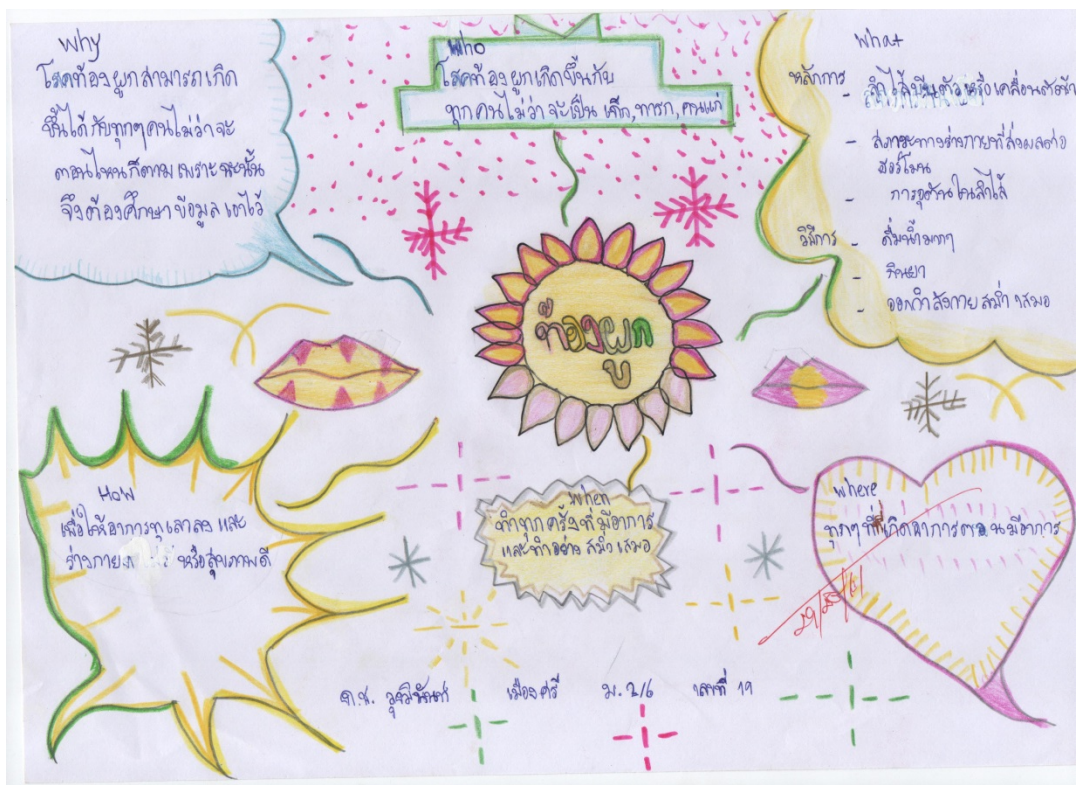 Why
โรคท้องผูกสามารถเกิด
ขึ้นได้กับทุกๆคนไม่ว่าจะ
ตอนไหนก็ตามเพราะฉะนั้น
จึงต้องศึกษาข้อมูลเอาไว้
Who
โรคท้องผูกเกิดขึ้นกับ
ทุกคนไม่ว่าจะเป็น เด็ก,ทารก,คนแก่
What
หลักการ - ลำไส้บีบตัวหรือเคลื่อนตัวช้า
- สภาวะทางร่างกายที่ส่งผลต่อ
ฮอร์โมน
- การอุดตันในลำไส้
วิธีการ - ดื่มน้ำมากๆ
- กินยา
- ออกกำลังกายสม่ำเสมอ
ท้องผูก
How
เพื่อให้อาการทุเลาลง และ
ร่างกาย หรือสุขภาพดี
When
ทำทุกครั้งที่มีอาการ
และทำอย่างสม่ำเสมอ
Where
ทุกๆที่ที่เกิดอาการตอนมีอาการ
ด.ช. เมืองศรี ม.2/6 เลขที่ 19